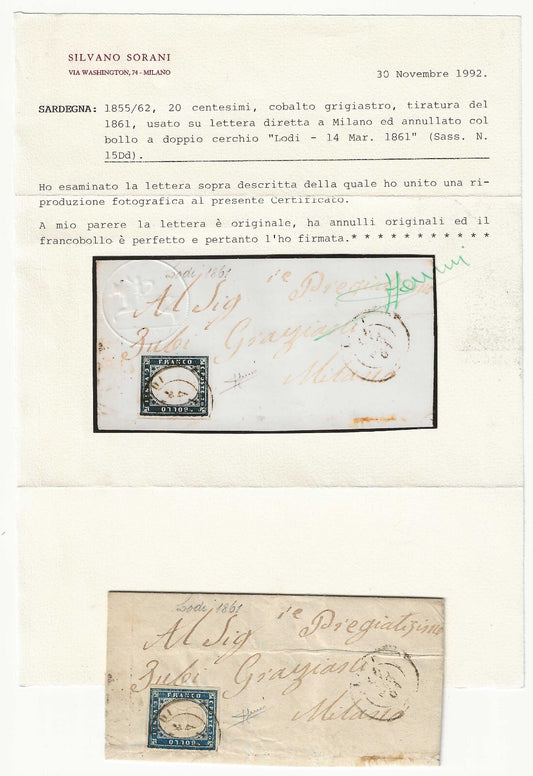 SILVANO SORANI
VIA WASHINGTON, 74 - MILANO
30 Novembre 1992.
SARDEGNA: 1855/62, 20 centesimi, cobalto grigiastro, tiratura del
1861, usato su lettera diretta a Milano ed annullato col
bollo a doppio cerchio "Lodi - 14 Mar. 1861" (Sass. N.
15Dd).
Ho esaminato la lettera sopra descritta della quale ho unito una ri-
produzione fotografica al presente Certificato.
A mio parere la lettera è originale, ha annulli originali ed il
francobollo è perfetto e pertanto l'ho firmata. * * * * * * * * * * *
Lodi 1861
Al Sig
Zubi Graziani
Milano
FRANCO
BOLLO
Lodi 1861
Al Sig Pregiatissimo
Zubi Graziani
Milano
FRANCO
BOLLO